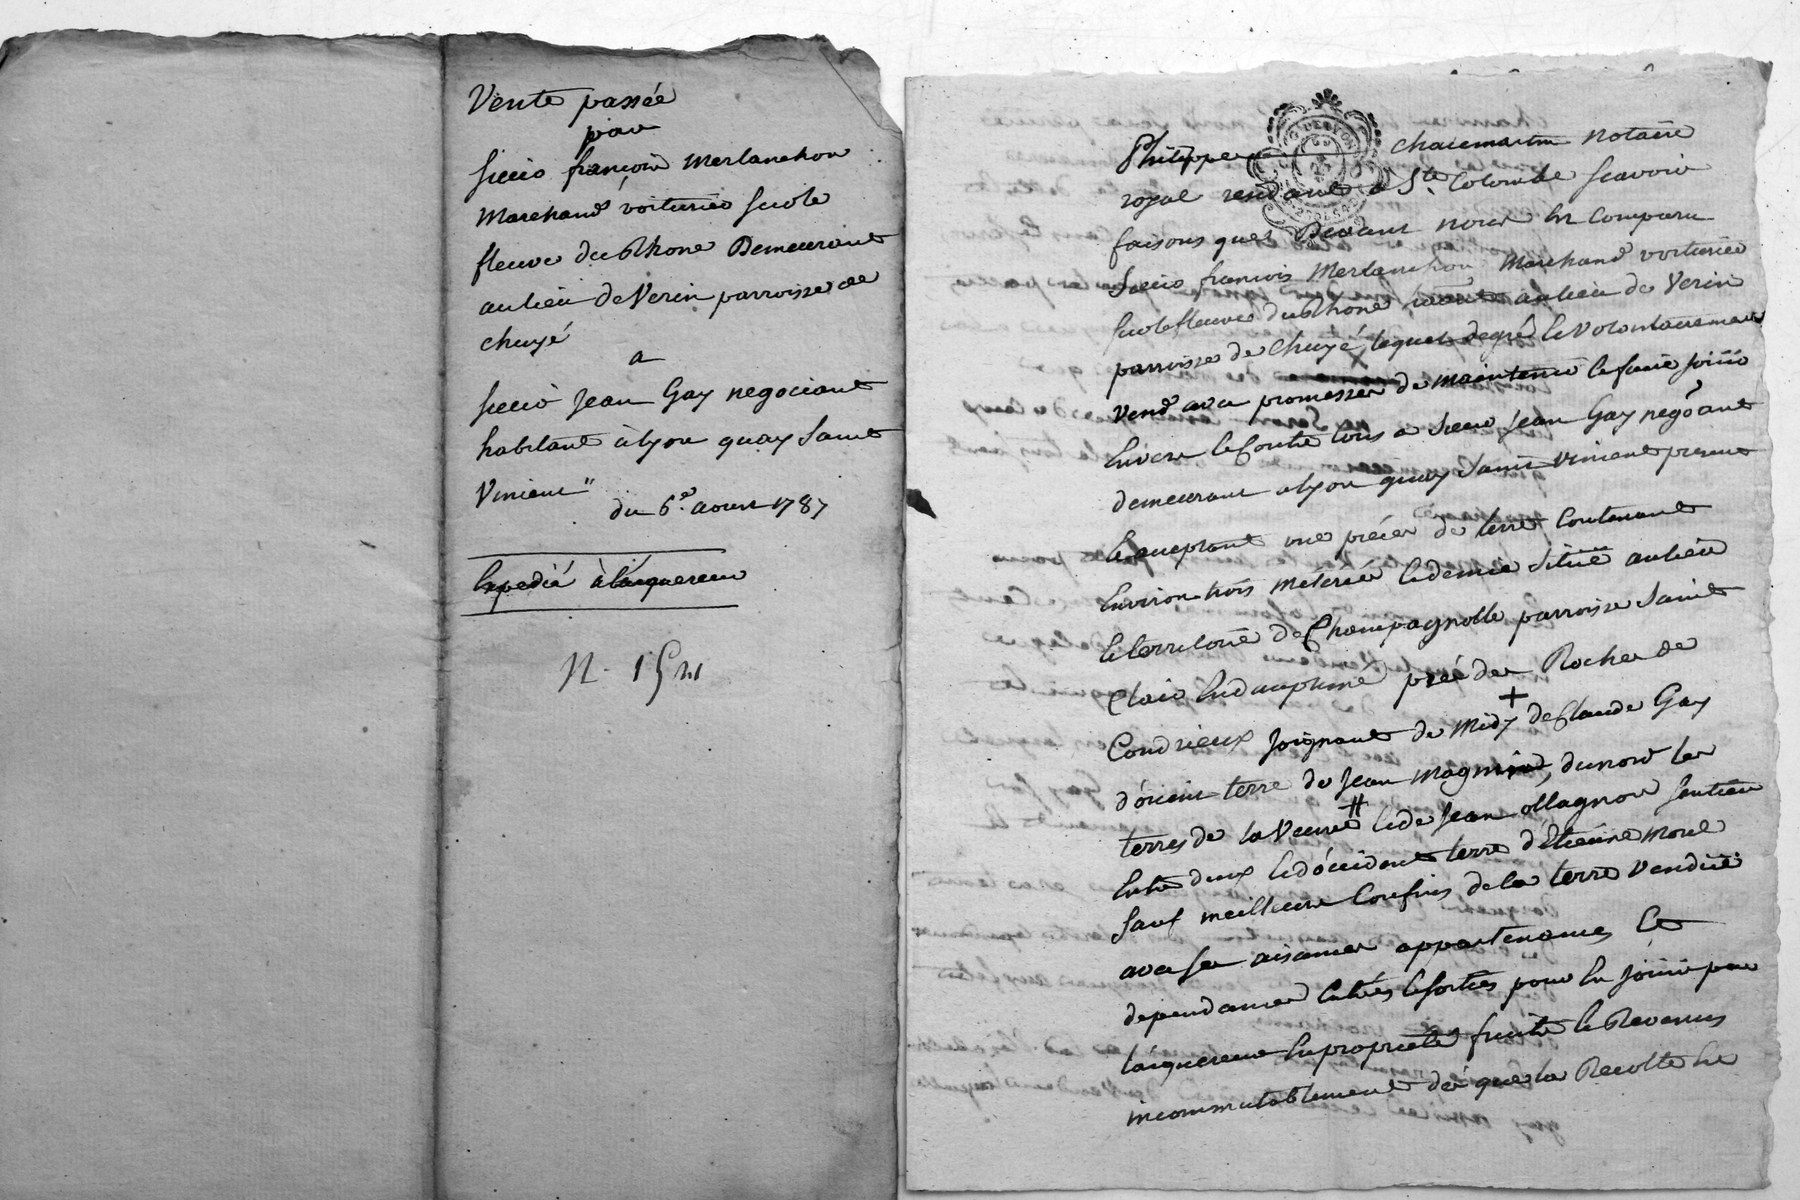 Vente passée
par
Sieur françois Merlanchon
Marchand voiturier sur le
fleuve du Rhone Demeurant
au lieu de Verin parroisse de
chuyé
a
Sieur Jean Gay negociant
habitant à lyon quay Saint
Vincent
du 6e. aoust 1787
Expedié à l'acquereur
N. 154
Philippe chasemartin notaire
royal residant a Ste Colombe Scavoir
faisons que Devant nous En Comparu
Sieur françois Merlanchon Marchand voiturier
sur le fleuve du Rhone au lieu de Verin
parroisse de Chuyé, lequel de gré Et Volontairement
Vend avec promesse de maintenir Et faire Joüir
Envers Et Contre tous a Sieur Jean Gay negoant
demeurant a lyon quay Saint Vincent present
Et acceptant une piéce de terre Contenant
Environ trois Meterée Et demie Située au lieu
Et territoire de Champagnolle parroisse Saint
Clair En dauphiné prés des Roches de
Condrieux Joignant de Midy de Claude Gay
d'orient terre de Jean magnin, du nord les
terres de la Veuve Et de Jean ollagnon Sentier
Entre deux Et d'occident terre d'Etienne Morel
Sauf meilleurs Confins de la terre Vendüe
avec Ses aisances appartenances Et
dependances Entrées Et Sorties pour En Joüir par
l'acquereur En propriété fruits Et Revenus
incommutablement dés que la Recolte En